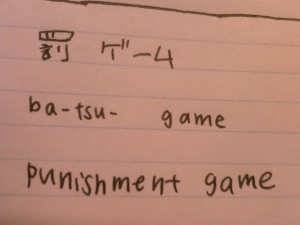 罰 ゲーム
ba-tsu- game
punishment game